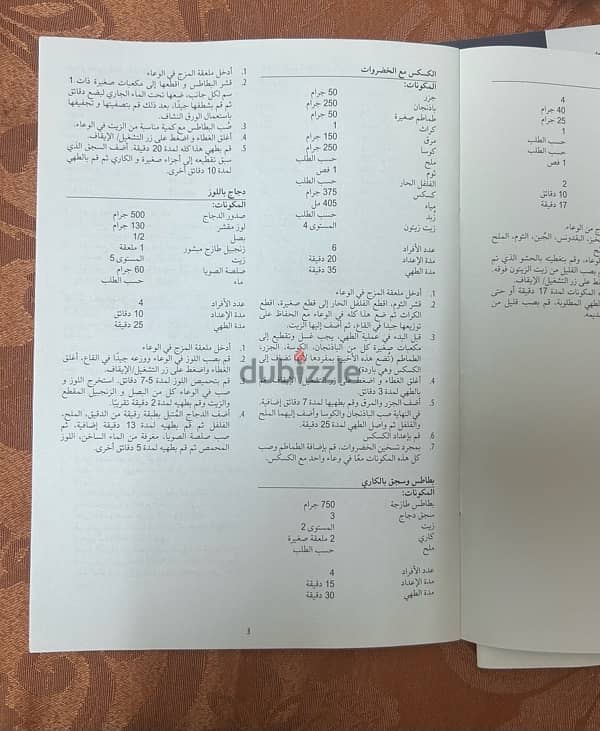 الكسكس مع الخضروات
المكونات:
جزر 50 جرام
باذنجان 250 جرام
طماطم صغيرة 50 جرام
كراث 1
مرق 150 جرام
كوسا 250 جرام
ملح حسب الطلب
ثوم 1 فص
الفلفل الحار حسب الطلب
كسكس 375 جرام
مياه 405 مل
زُبد حسب الطلب
زيت زيتون المستوى 4
عدد الأفراد 6
مدة الإعداد 20 دقيقة
مدة الطهي 35 دقيقة
1. أدخل ملعقة المزج في الوعاء
2. قشر الثوم، اقطع الفلفل الحار إلى قطع صغيرة، اقطع
الكراث ثم ضع هذا كله في الوعاء مع الحفاظ على
توزيعها جيدًا في القاع، ثم أضف إليها الزيت.
3. قبل البدء في عملية الطهي، يجب غسل وتقطيع إلى
مكعبات صغيرة كل من الباذنجان، الكوسة، الجزر،
الطماطم (تضع هذه الأخيرة بمفردها لأنها تضاف إلى
الكسكس وهي باردة).
4. أغلق الغطاء و اضغط على زر التشغيل/ الإيقاف قم
بالطهي لمدة 3 دقائق.
5. أضف الجزر والمرق وقم بطهيها لمدة 7 دقائق إضافية.
في النهاية صب الباذنجان والكوسا وأضف إليهما الملح
والفلفل ثم واصل الطهي لمدة 25 دقيقة.
6. قم بإعداد الكسكس
7. بمجرد تسخين الخضروات، قم بإضافة الطماطم وصب
كل هذه المكونات معًا في وعاء واحد مع الكسكس.
بطاطس وسجق بالكاري
المكونات:
بطاطس طازحة 750 جرام
سجق دجاج 3
زيت المستوى 2
كاري 2 ملعقة صغيرة
ملح حسب الطلب
عدد الأفراد 4
مدة الإعداد 15 دقيقة
مدة الطهي 30 دقيقة
1. أدخل ملعقة المزج في الوعاء
2. قشر البطاطس و اقطعها إلى مكعبات صغيرة ذات 1
سم لكل جانب، ضعها تحت الماء الجاري لبضع دقائق
ثم قم بشطفها جيدًا، بعد ذلك قم بتصفيتها و تجفيفها
باستعمال الورق النشاف.
3. صُب البطاطس مع كمية مناسبة من الزيت في الوعاء.
4. أغلق الغطاء و اضغط على زر التشغيل/ الإيقاف.
5. قم بطهي هذا كله لمدة 20 دقيقة. أضف السجق الذي
سبق تقطيعه إلى أجزاء صغيرة و الكاري ثم قم بالطهي
لمدة 10 دقائق أخرى.
دجاج باللوز
المكونات:
صدور الدجاج 500 جرام
لوز مقشر 130 جرام
بصل 1/2
زنجبيل طازج مبشور 1 ملعقة
زيت المستوى 5
صلصة الصويا 60 جرام
ماء حسب الطلب
عدد الأفراد 4
مدة الإعداد 10 دقائق
مدة الطهي 25 دقيقة
1. أدخل ملعقة المزج في الوعاء
2. قم بصب اللوز في الوعاء ووزعه جيدًا في القاع، أغلق
الغطاء واضغط على زر التشغيل/ الإيقاف.
3. قم بتحميص اللوز لمدة 5-7 دقائق. استخرج اللوز و
صب في الوعاء كل من البصل و الزنجبيل المقطع
والزيت وقم بطهيه لمدة 2 دقيقة تقريبًا
4. أضف الدجاج المُتبل بطبقة رقيقة من الدقيق، الملح،
الفلفل ثم قم بطهيه لمدة 13 دقيقة إضافية، ثم
صب صلصة الصويا، مغرفة من الماء الساخن، اللوز
المحمص ثم قم بطهيه لمدة 5 دقائق أخرى.
3
4
40 جرام
25 جرام
1
حسب الطلب
حسب الطلب
1 فص
2
10 دقائق
17 دقيقة
dubizzle